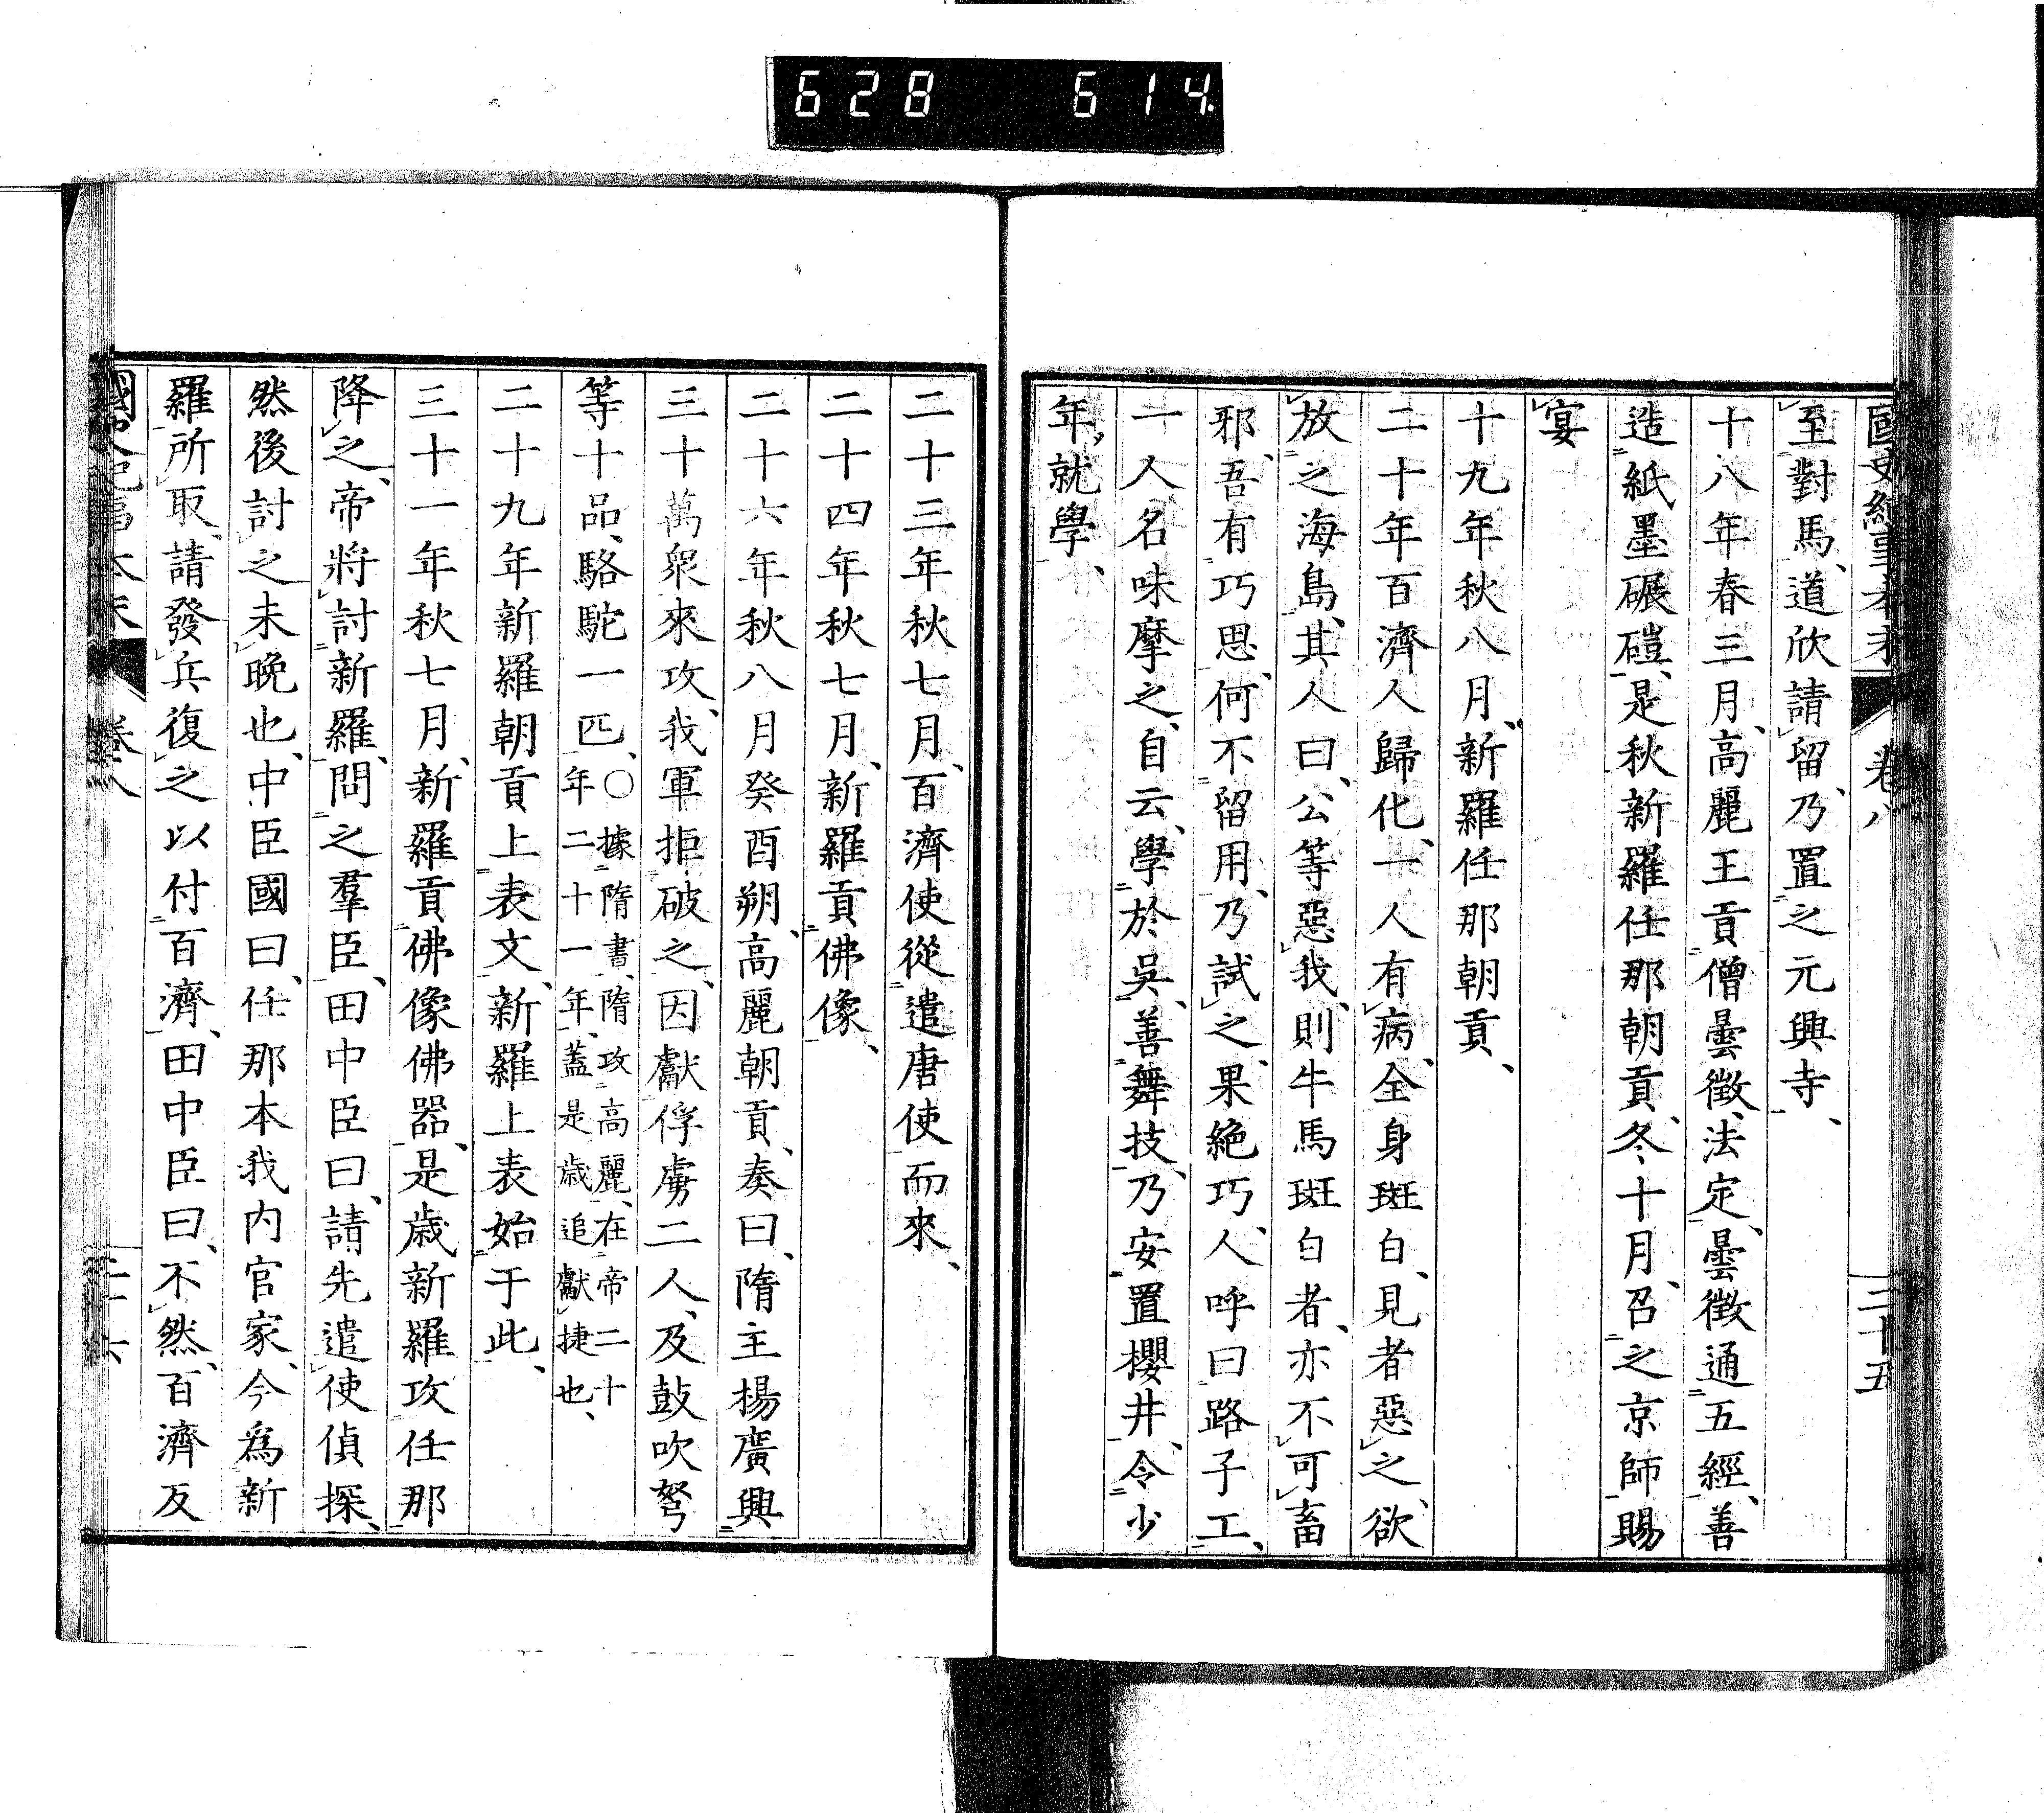 628 614
國史紀事本末 卷八 二十五
至對馬、道欣請留、乃置之元興寺、
十八年春三月、高麗王貢僧曇徵、法定、曇徵通五經、善
造紙墨碾磑、是秋新羅任那朝貢、冬十月、召之京師賜
宴
十九年秋八月、新羅任那朝貢、
二十年百濟人歸化、一人有病、全身斑白、見者惡之、欲
放之海島、其人曰、公等惡我、則牛馬斑白者、亦不可畜
邪、吾有巧思、何不留用、乃試之、果絶巧、人呼曰路子工、
一人名味摩之、自云、學於吳、善舞技、乃安置櫻井、令少
年就學、
二十三年秋七月、百濟使從遣唐使而來、
二十四年秋七月、新羅貢佛像、
二十六年秋八月癸酉朔、高麗朝貢、奏曰、隋主楊廣興
三十萬衆來攻、我軍拒破之、因獻俘虜二人、及鼓吹弩
等十品、駱駝一匹、〇據隋書、隋攻高麗、在帝二十
年二十一年、蓋是歳追獻捷也、
二十九年新羅朝貢上表文、新羅上表始于此、
三十一年秋七月、新羅貢佛像佛器、是歳新羅攻任那
降之、帝將討新羅、問之羣臣、田中臣曰、請先遣使偵探、
然後討之未晚也、中臣國曰、任那本我内官家、今爲新
羅所取、請發兵復之以付百濟、田中臣曰、不然、百濟反
國史紀事本末 卷八 二十六